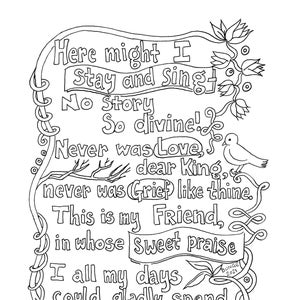 Here might I
Stay and Sing,
No Story
So divine!
Never was Love,
dear King,
never was Grief like thine.
This is my Friend,
in whose sweet praise
I all my days
could gladly spend